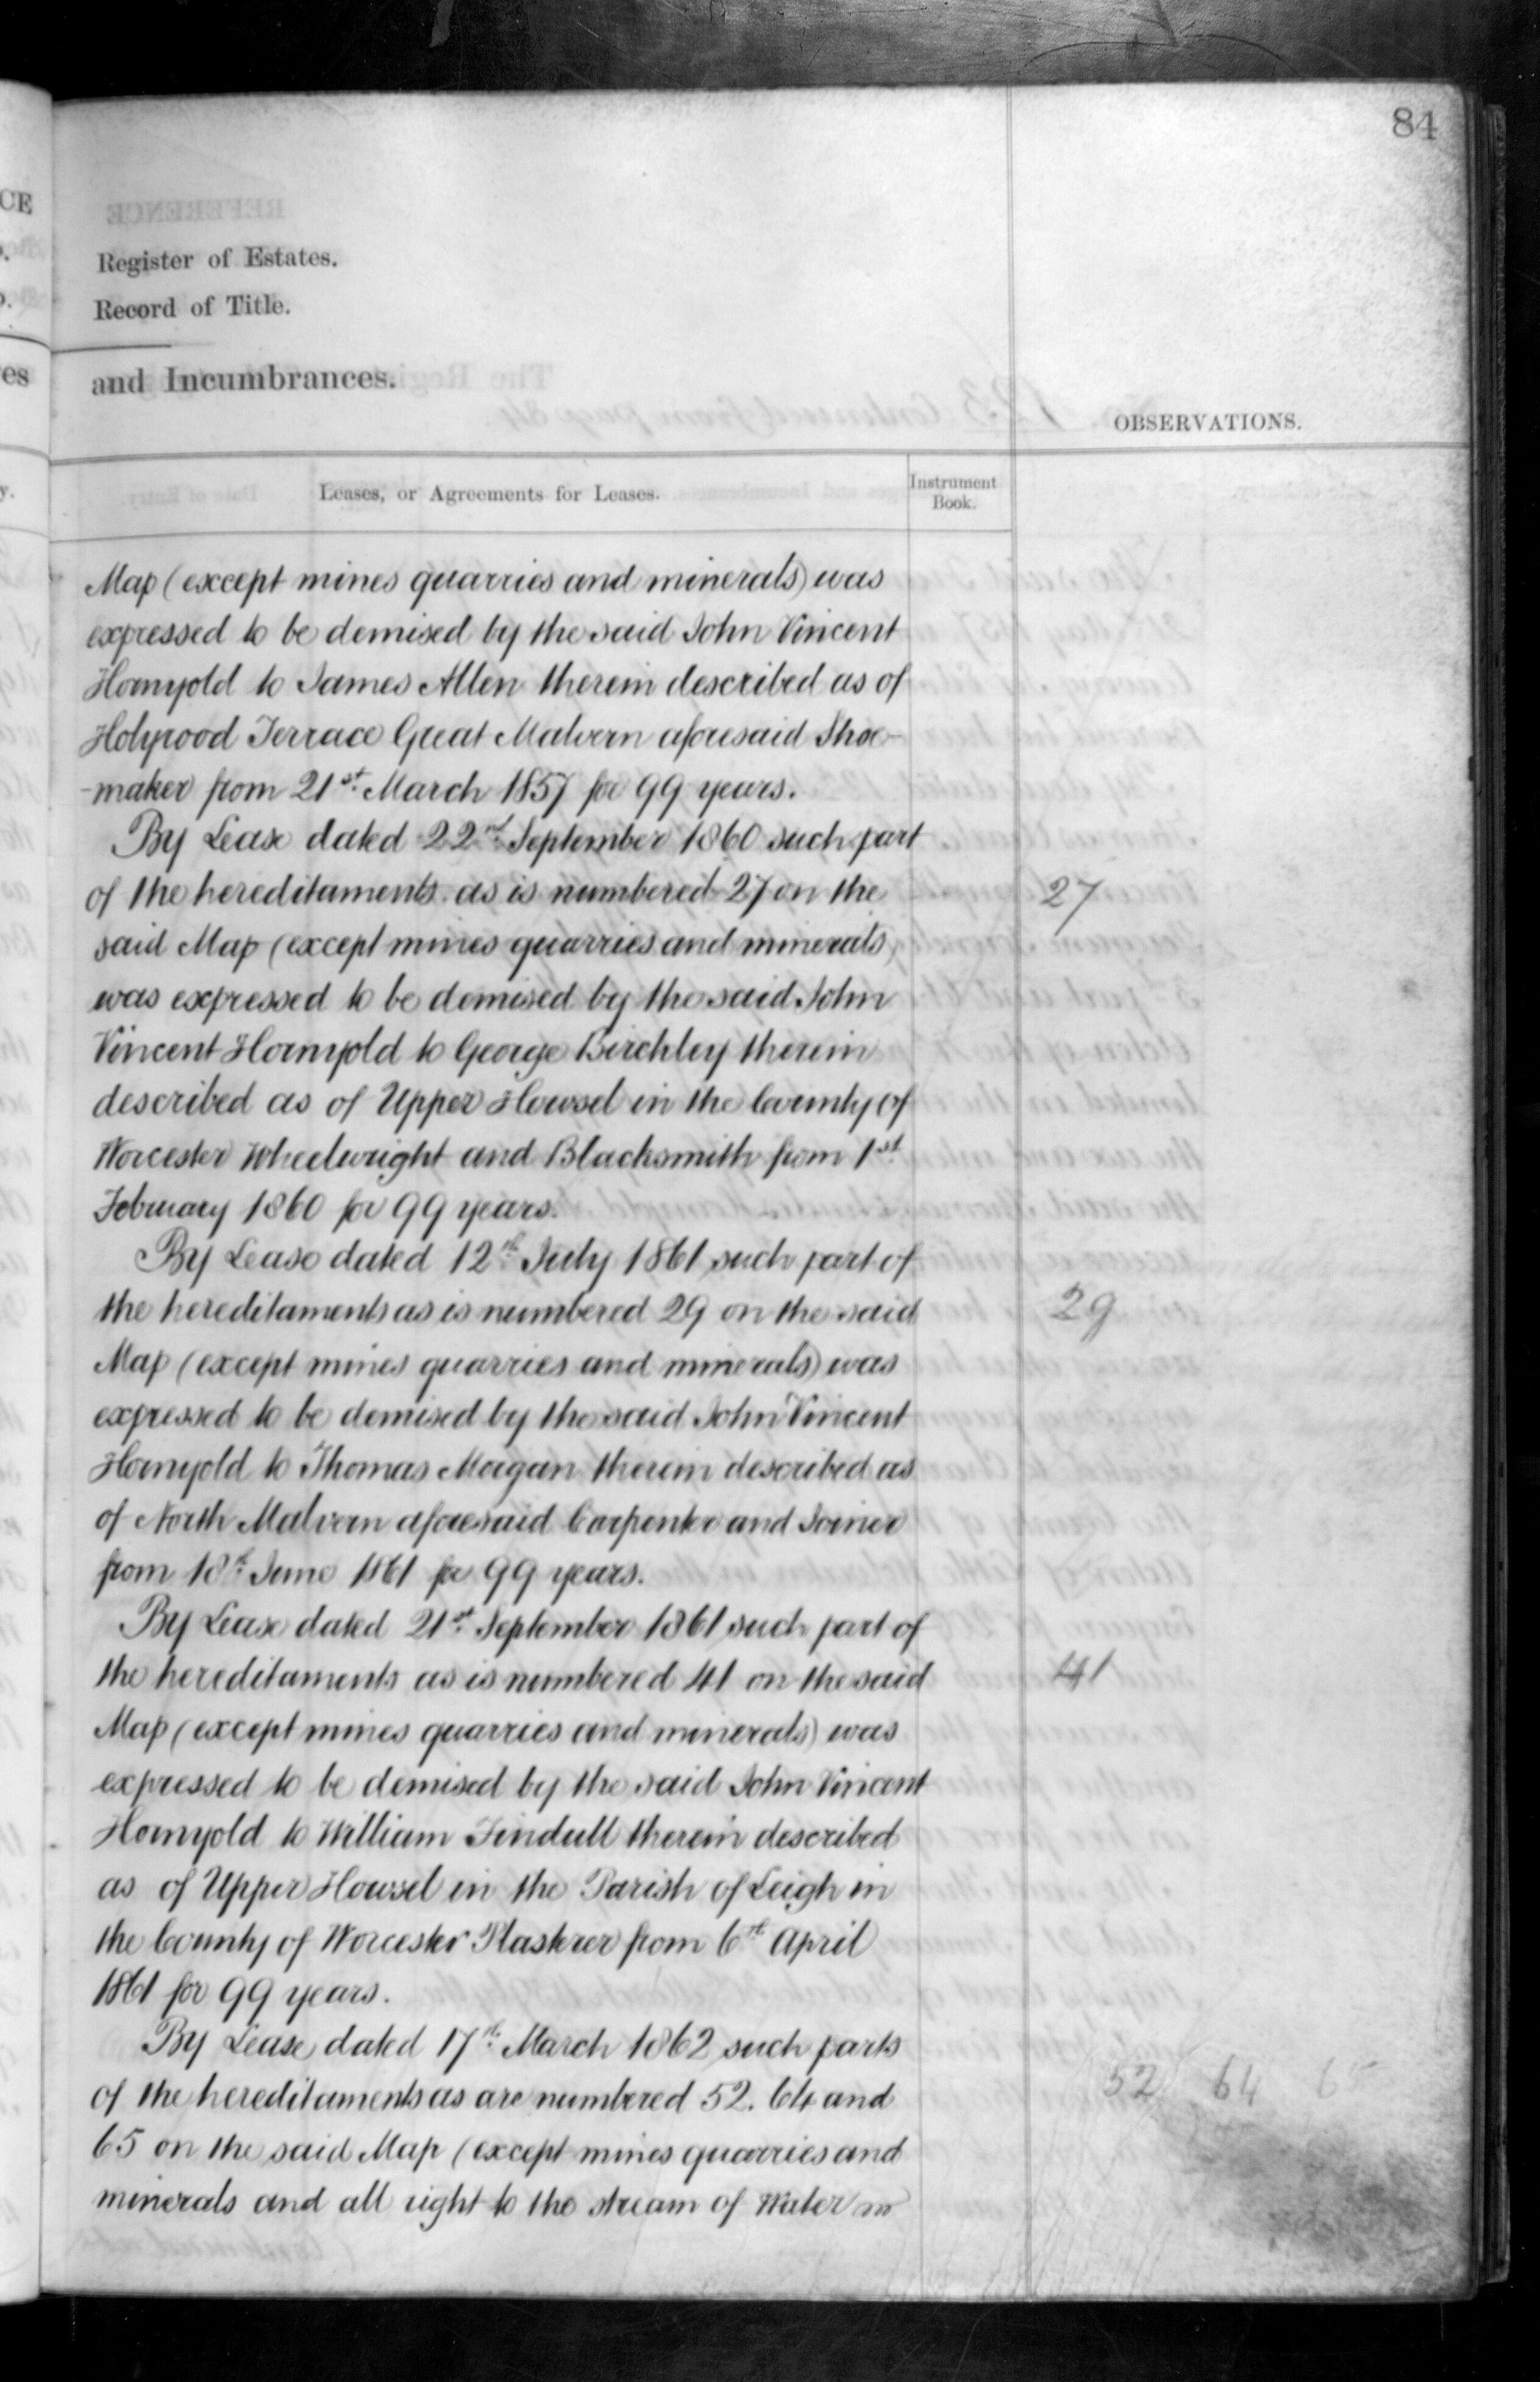 84
Register of Estates.
Record of Title.
and Incumbrances.
OBSERVATIONS.
Leases, or Agreements for Leases.
Instrument
Book.
Map (except mines quarries and minerals) was
expressed to be demised by the said John Vincent
Hornyold to James Allen therein described as of
Holyrood Terrace Great Malvern aforesaid Shoe-
-maker from 21st March 1857 for 99 years.
By Lease dated 22nd September 1860 such part
of the hereditaments as is numbered 27 on the
27
said Map (except mines quarries and minerals)
was expressed to be demised by the said John
Vincent Hornyold to George Birchley therein
described as of Upper Howsel in the County of
Worcester Wheelwright and Blacksmith from 1st
February 1860 for 99 years.
By Lease dated 12th July 1861 such part of
the hereditaments as is numbered 29 on the said
29
Map (except mines quarries and minerals) was
expressed to be demised by the said John Vincent
Hornyold to Thomas Morgan therein described as
of North Malvern aforesaid Carpenter and Joiner
from 18th June 1861 for 99 years.
By Lease dated 21st September 1861 such part of
the hereditaments as is numbered 41 on the said
41
Map (except mines quarries and minerals) was
expressed to be demised by the said John Vincent
Hornyold to William Tindull therein described
as of Upper Howsel in the Parish of Leigh in
the County of Worcester Plasterer from 6th April
1861 for 99 years.
By Lease dated 17th March 1862 such parts
of the hereditaments as are numbered 52. 64 and
52 64 65
65 on the said Map (except mines quarries and
minerals and all right to the stream of Water in